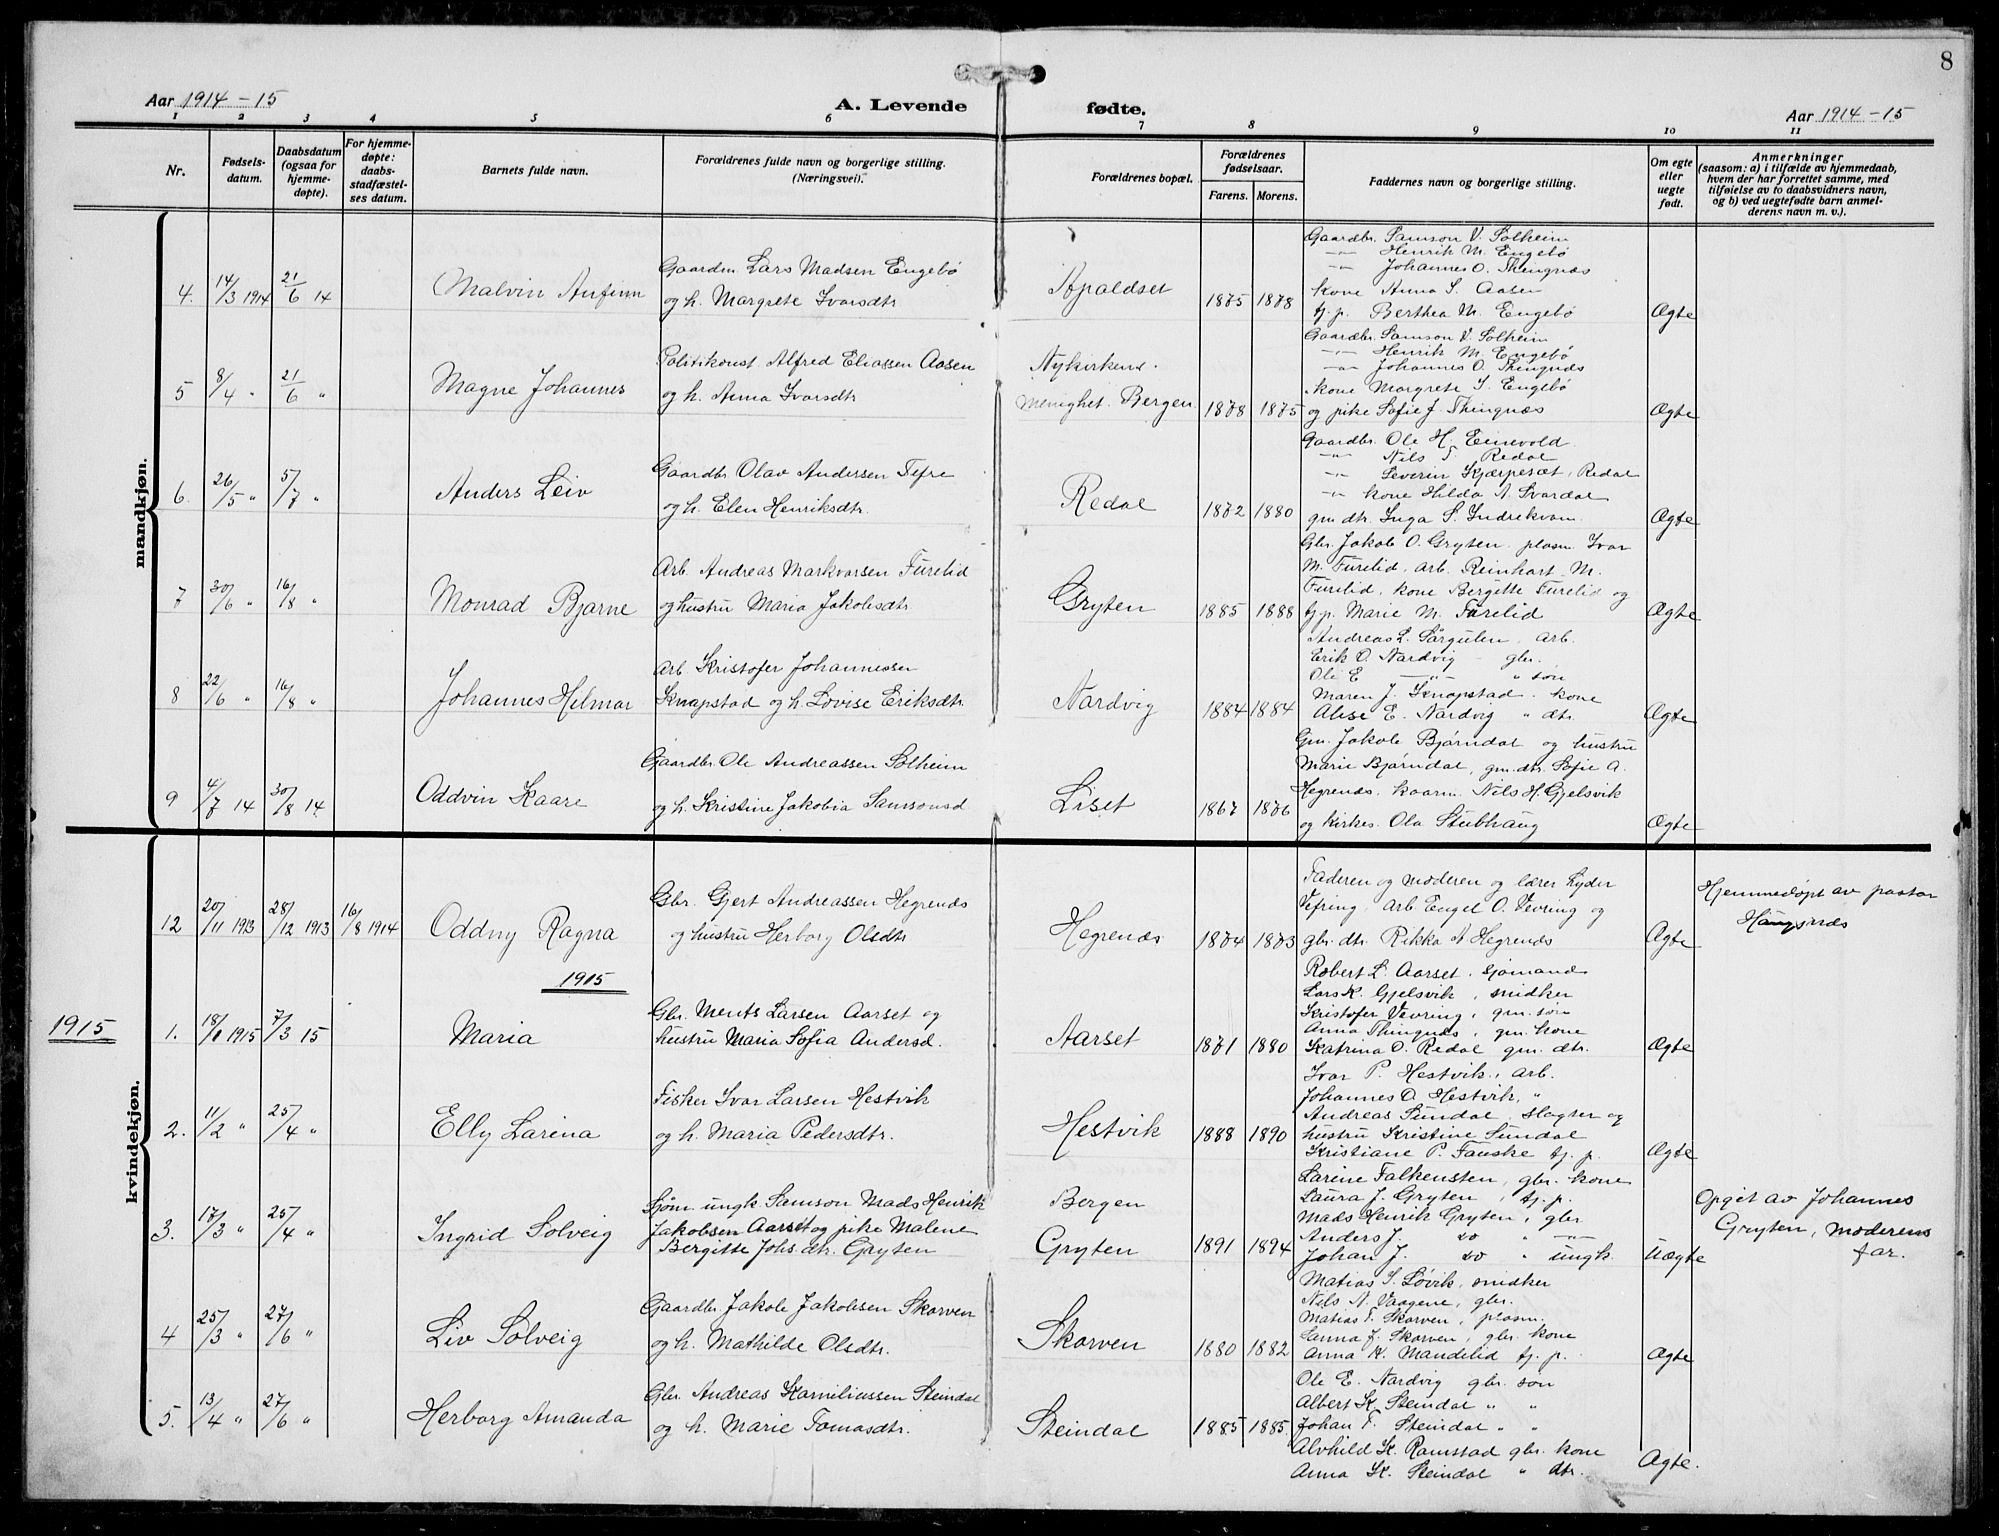 8
Aar 1914-15
A. Levende fødte.
Aar 1914-15
1 2 3 4 5 6 7 8 9 10 11
Nr.
Fødsels-
datum.
Daabsdatum
(ogsaa for
hjemme-
døpte).
For hjemme-
døpte:
daabs-
stadfæstel-
ses datum.
Barnets fulde navn.
Forældrenes fulde navn og borgerlige stilling.
(Næringsvei).
Forældrenes bopæl.
Forældrenes
fødselsaar.
Farens. Morens.
Faddernes navn og borgerlige stilling.
Om egte
eller
uegte
født.
Anmerkninger
(saasom: a) i tilfælde av hjemmedaab,
hvem der har forrettet samme, med
tilføielse av to daabsvidners navn,
og b) ved uegtefødte barn anmel-
derens navn m. v.).
mandkjøn.
4. 14/3 1914 21/6 14
Malvin Anfinn
Gaardm. Lars Madsen Engebø
og h. Margrete Ivarsdtr
Apaldset
1875 1878
Gaardbr. Samson V. Solheim
-"- Henrik M. Engebø
-"- Johannes O. Thingnæs
kone Anna S. Aasen
tj. p. Berthea M. Engebø
Ægte
5 8/4 " 21/6 "
Magne Johannes
Politikonst Alfred Eliassen Aasen
og h. Anna Ivarsdtr
Nykirkens
menighet. Bergen
1878 1875
Gaardbr. Samson V. Solheim
-"- Henrik M. Engebø
-"- Johannes O. Thingnæs
kone Margrete I. Engebø
og pike Sofie J. Thingnæs
Ægte
6. 26/5 " 5/7 "
Anders Leiv
Gaardbr Olav Andersen Tefre
og h. Elen Henriksdtr.
Redal
1872 1880
Gaardbr. Ole H. Einevold
-"- Nils T. Redal
-"- Severin Kjærpesæt, Redal
-"- kone Hilda A. Svardal
gm. dtr. Inga S. Indrekvam.
Ægte
7 30/6 " 16/8 "
Monrad Bjarne
Arb. Andreas Markvorsen Furelid
og hustru Maria Jakobsdtr
Gryten
1885 1888
Gbr. Jakob O. Gryten. plasm. Ivar
M. Furelid, arb. Reinhart M.
Furelid, kone Bergitte Furelid og
tj. p. Marie M. Furelid
Ægte
8 22/6 " 16/8 "
Johannes Hilmar
Arb. Kristofer Johannessen
Knapstad og h. Lovise Eriksdtr.
Nardvig
1884 1884
Andreas L. Sørgulen, arb.
Erik O. Nardvig - gbr.
Ole E -"- " søn
Maren J. Knapstad. kone
Alise E. Nardvig " dtr
Ægte
9 4/7 14 30/8 14
Oddvin Kaare
Gaardbr. Ole Andreassen Solheim
og h. Kristine Jakobia Samsonsd
Liset
1867 1876
Gm. Jakob Bjørndal og hustru
Marie Bjørndal, gm. dtr. Sofie A.
Hegrenæs. kaarm. Nils H. Gjelsvik
og kirkes. Ola Stubhaug
Ægte
kvindekjøn.
12 20/11 1913 28/12 1913 16/8 1914
Oddny Ragna
Gbr. Gjert Andreassen Hegrenæs
og hustru Herborg Olsdtr
Hegrenæs
1874 1873
Faderen og moderen og lærer Lyder
Vefring, arb. Engel O. Vevring og
gbr. dtr. Rikka A Hegrenæs
Ægte
Hjemmedøpt av pastor
Haugsnæs
1915
1915
1. 18/1 1915 7/3 15
Maria
Gbr. Ments Larsen Aarset og
hustru Maria Sofia Andersd.
Aarset
1871 1880
Robert L. Aarset, sjømand
Lars K. Gjelsvik, snidker
Kristofer Vevring, gm. søn
Anna Thingnæs, gm. kone
Katrina O. Redal gm. dtr.
Ægte
2. 11/2 " 25/4 "
Elly Larina
Fisker Ivar Larsen Hestvik
og h. Maria Pedersdtr.
Hestvik
1888 1890
Ivar P. Hestvik, arb.
Johannes A. Hestvik, "
Andreas Sundal, slagter og
hustru Kristine Sundal
Kristiane P. Fauske tj. p.
Ægte
3. 17/3 " 25/4 "
Ingrid Solveig
Sjøm. ungk. Samson Mads Henrik
Jakobsen Aarset og pike Malene
Bergitte Johs. dtr. Gryten
Bergen
Gryten
1891 1894
Larine Falkensten, gbr. kone
Laura J. Gryten, tj. p.
Mads Henrik Gryten, gbr
Anders J. do " -"-
Johan J. do " ungk.
Uægte
Opget av Johannes
Gryten, moderens
far.
4 25/3 " 27/6 "
Liv Solveig
Gaardbr. Jakob Jakobsen Skorven
og h. Mathilde Olsdtr.
Skorven
1880 1882
Matias S. Løvik, snidker
Nils A. Vaagene, gbr.
Matias T. Skorven, plasm.
Sanna J. Skorven, gbr. kone
Anna K. Mandelid tj. p.
Ægte
5. 13/4 " 27/6 "
Herborg Amanda
Gbr. Andreas Korneliussen Steindal
og h. Marie Tomasdtr.
Steindal
1885 1885
Ole E. Nardvig gbr. søn
Albert K. Steindal " "
Johan T. Steindal " "
Alvhild K. Ramstad gbr. kone
Anna K. Steindal " dtr.
Ægte.